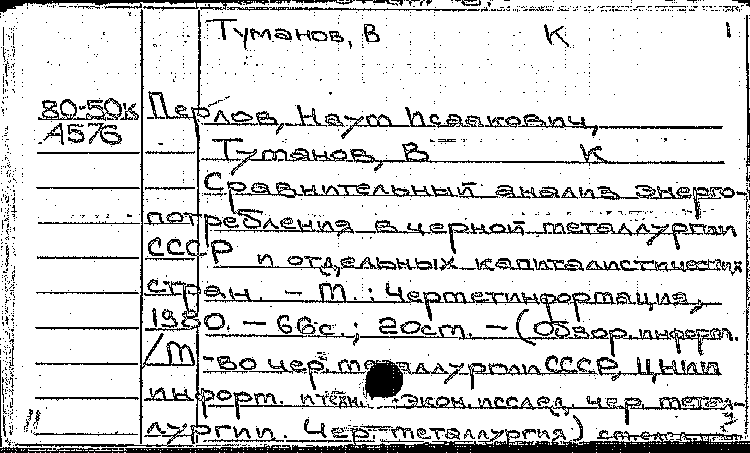 Туманов, В К 1
80-50к Перлов, Наум Исаакович,
А576 Туманов, В К
Сравнительный анализ энерго-
потребления в черной металлургии
СССР и отдельных капиталистических
стран. – М.: Черметинформация,
1980. – 66с.; 20см. – (Обзор. информ.
/М-во чер. металлургии СССР, ЦНИИ
информ. и техн.-экон. исслед. чер. метал-
лургии. Чер. металлургия)